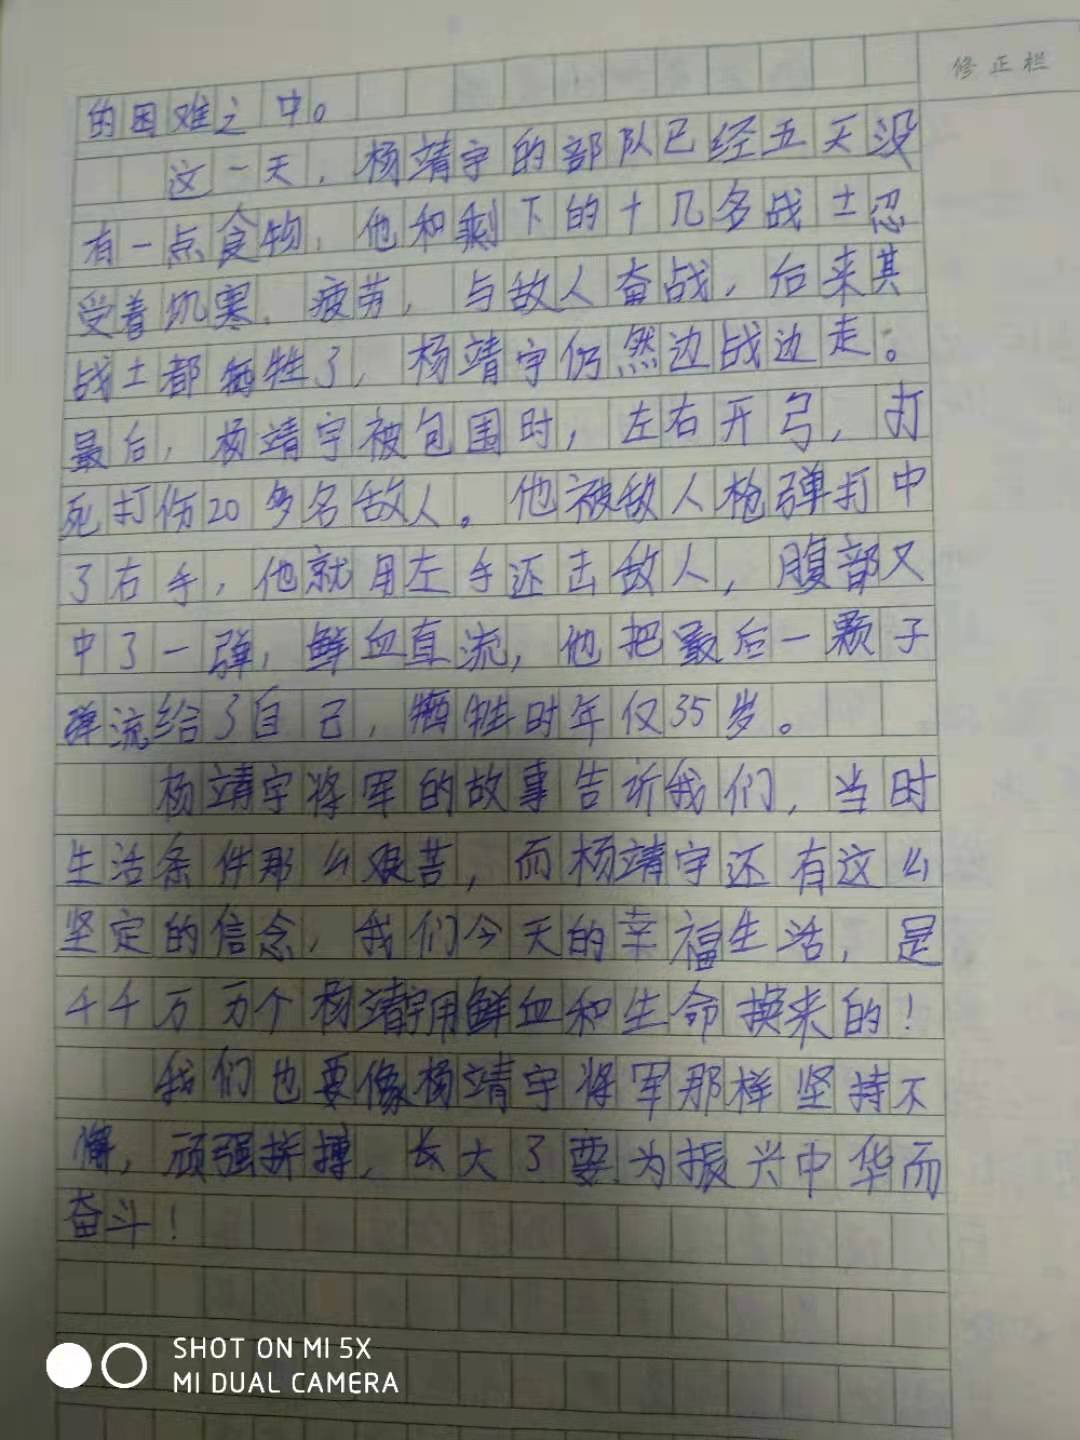 修正栏
的困难之中。
这一天，杨靖宇的部队已经五天没
有一点食物，他和剩下的十几名战士忍
受着饥寒、疲劳，与敌人奋战，后来其
战士都牺牲了，杨靖宇仍然边战边走。
最后，杨靖宇被包围时，左右开弓，打
死打伤20多名敌人。他被敌人枪弹打中
了右手，他就用左手还击敌人，腹部又
中了一弹，鲜血直流，他把最后一颗子
弹流给了自己，牺牲时年仅35岁。
杨靖宇将军的故事告诉我们，当时
生活条件那么艰苦，而杨靖宇还有这么
坚定的信念，我们今天的幸福生活，是
千千万万个杨靖宇用鲜血和生命换来的！
我们也要像杨靖宇将军那样坚持不
懈，顽强拼搏，长大了要为振兴中华而
奋斗！
SHOT ON MI 5X
MI DUAL CAMERA